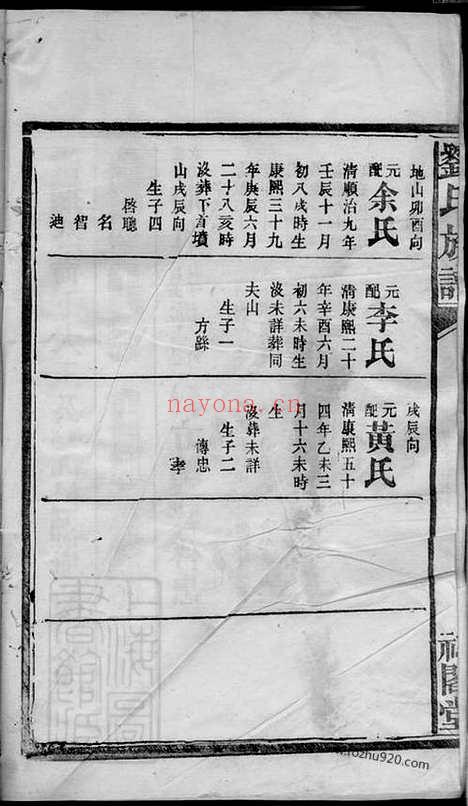 劉氏族譜
地山夘酉向
元配余氏
清順治九年
壬辰十一月
初八戌時生
康熙三十九
年庚辰六月
二十八亥時
沒葬下首墳
山戌辰向
生子四
啓聰
名
智
迪
元配李氏
清康熙二十
年辛酉六月
初六未時生
沒未詳葬同
夫山
生子一
方蹂
戌辰向
元配黃氏
清康熙五十
四年乙未三
月十六未時
生
沒葬未詳
生子二
傳忠
孝
閣堂
上海圖書館
nayona.cn
rozhu920.com